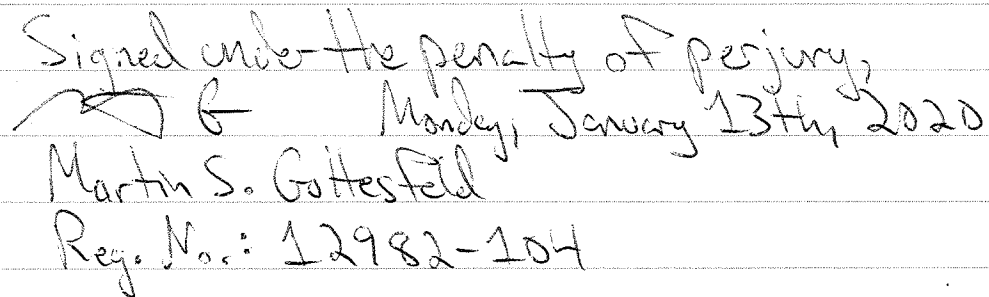 Signed under the penalty of perjury,
Monday, January 13th, 2020
Martin S. Gottesfeld
Reg. No.: 12982-104